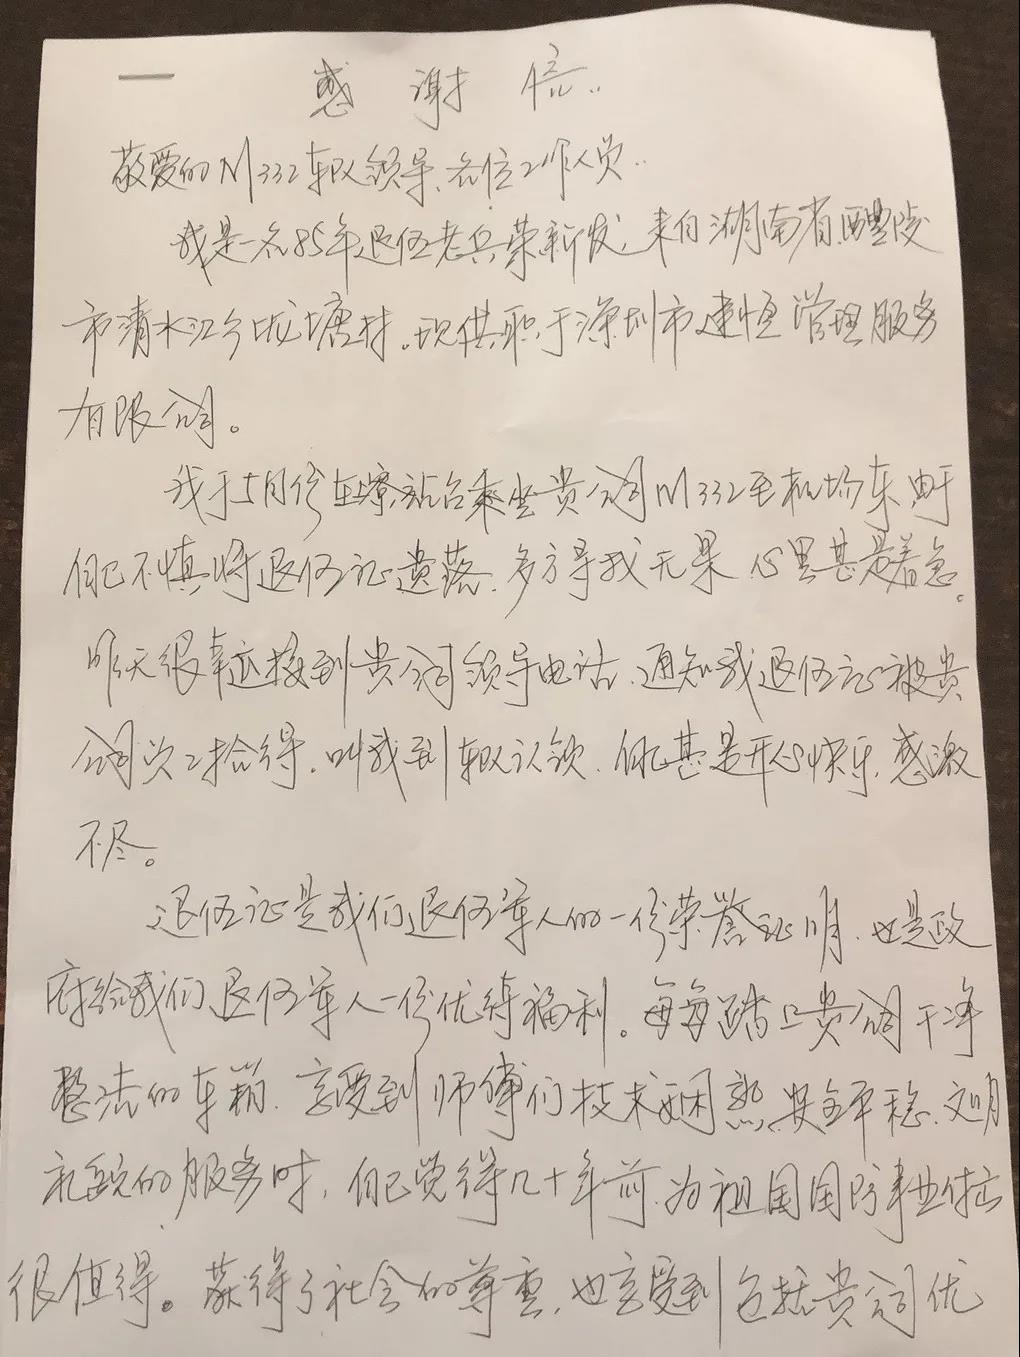 感谢信
敬爱的M332车队领导、各位工作人员:
我是一名85年退伍老兵荣新发,来自湖南省醴陵
市清水江乡垅塘村。现供职于深圳市建恒管理服务
有限公司。
我于5月份在寮站台乘坐贵公司M332至机场车,由于
自己不慎将退伍证遗落、多方寻找无果,心里甚是着急。
昨天很幸运接到贵公司领导电话、通知我退伍证被贵
公司员工拾得,叫我到车队认领、自己甚是开心快乐,感激
不尽。
退伍证是我们退伍军人的一份荣誉证明、也是政
府给我们退伍军人一份优待福利。每每踏上贵公司干净
整洁的车箱、享受到师傅们技术娴熟、安全平稳、文明
礼貌的服务时,自己觉得几十年前、为祖国国防事业付出
很值得。获得了社会的尊重,也享受到包括贵公司优